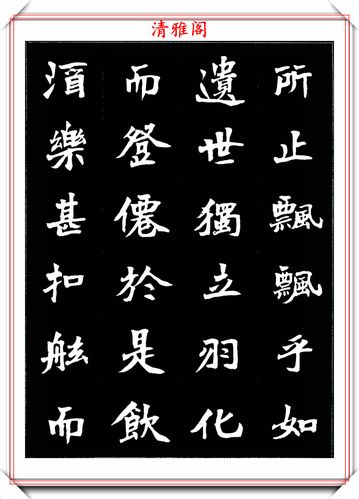 清雅阁
所止飄飄乎如
遺世獨立羽化
而登僊於是飲
酒樂甚扣舷而